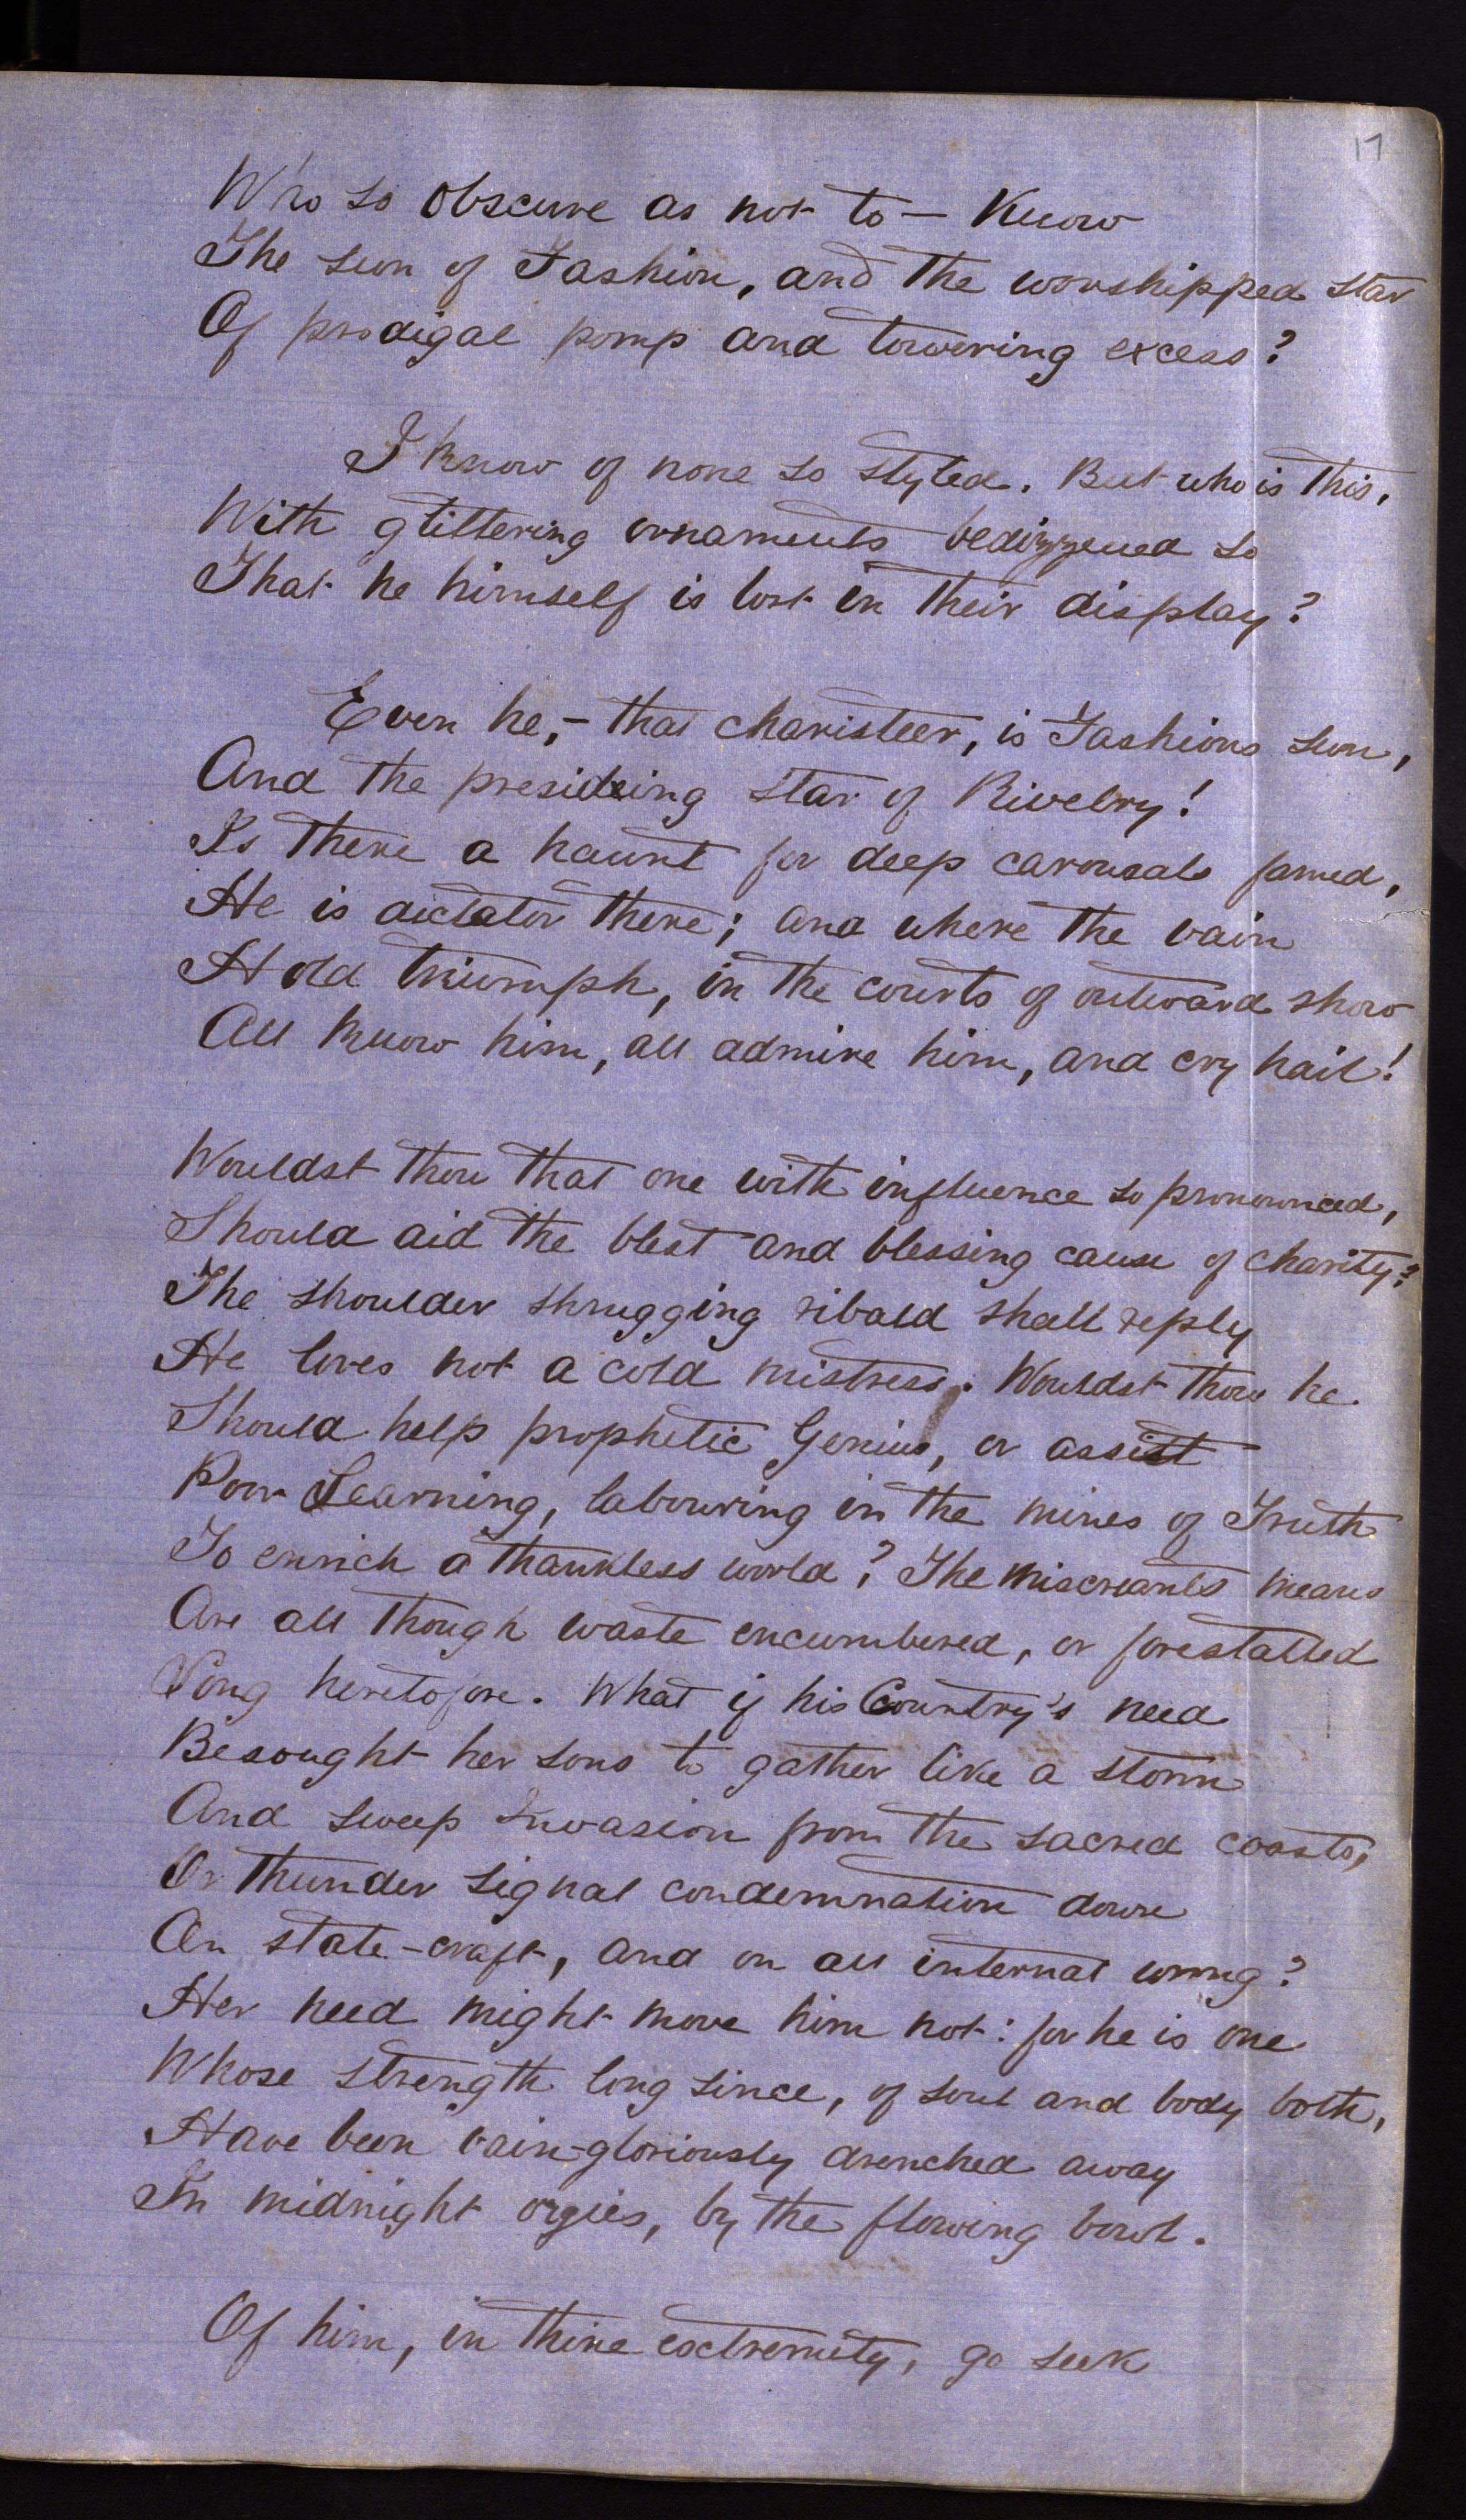 17
Who so obscure as not to — Know
The sun of Fashion, and the worshipped star
Of prodigal pomp and towering excess?
I know of none so styled. But who is this,
With glittering ornaments bedizzened so
That he himself is lost in their display?
Even he, – that charisteer, is Fashions sun,
And the presideing star of Rivelry!
Is there a haunt for deep carousals famed,
He is dictator there; and where the vain
Hold triumph, in the courts of outward show
All know him, all admire him, and cry hail!
Wouldst thou that one with influence so pronounced,
Should aid the blest and blessing cause of charity?
The shoulder shrugging ribald shall reply
He loves not a cold mistress. Wouldst thou he
Should help prophetic Genius, or assist
Poor Learning, labouring in the mines of Truth
To enrich a thankless world? The miscreants means
Are all though waste encumbered, or forestalled
Long heretofore. What if his Country's need
Besought her sons to gather like a storm
And sweep Invasion from the sacred coasts,
Or thunder signal condemnation down
On state-craft, and on all internal wrong?
Her need might move him not: for he is one
Whose strength long since, of soul and body both,
Have been vain-gloriously drenched away
In midnight orgies, by the flowing bowl.
Of him, in thine extremity, go seek